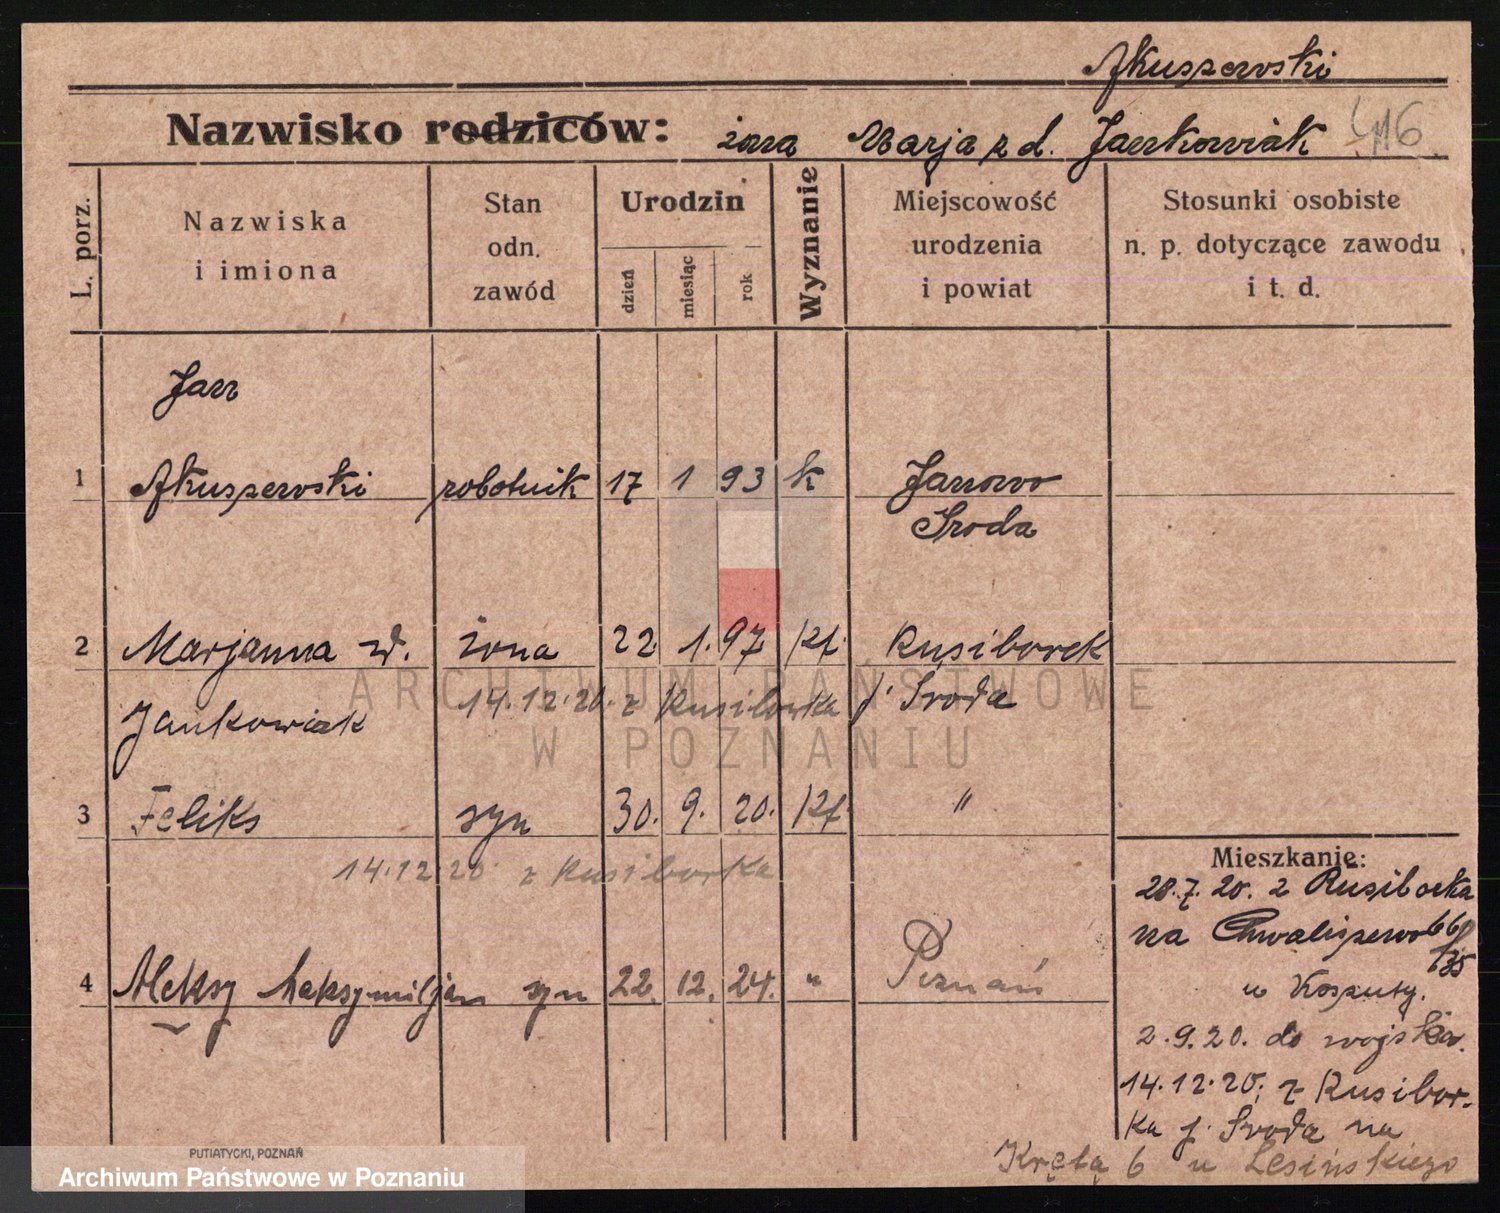 Akuszewski
Nazwisko rodziców: żona Marja z d. Jankowiak 416
L. porz.
Nazwiska
i imiona
Stan
odn.
zawód
Urodzin
dzień
miesiąc
rok
Wyznanie
Miejscowość
urodzenia
i powiat
Stosunki osobiste
n. p. dotyczące zawodu
i t. d.
Jan
1 Akuszewski robotnik 17 1 93 k Janowo
Sroda
2 Marjanna z d. żona 22 1. 97 kt. Rusiborek
Jankowiak 14.12.20. z Rusiborka p. Środa
3 Feliks syn 30. 9. 20. kt. "
14.12 20 z Rusiborka
4 Aleksy Maksymiljan syn 22. 12. 24. " Poznań
Mieszkanie:
28.7.20. z Rusiborka
na Chwaliszewo 66
u Koszuty.
2.9.20. do wojska.
14.12.20; z Rusibor-
ka p. Środa na
Krętą 6 u Lesińskiego
PUTIATYCKI, POZNAŃ
ARCHIWUM PAŃSTWOWE
W POZNANIU
Archiwum Państwowe w Poznaniu